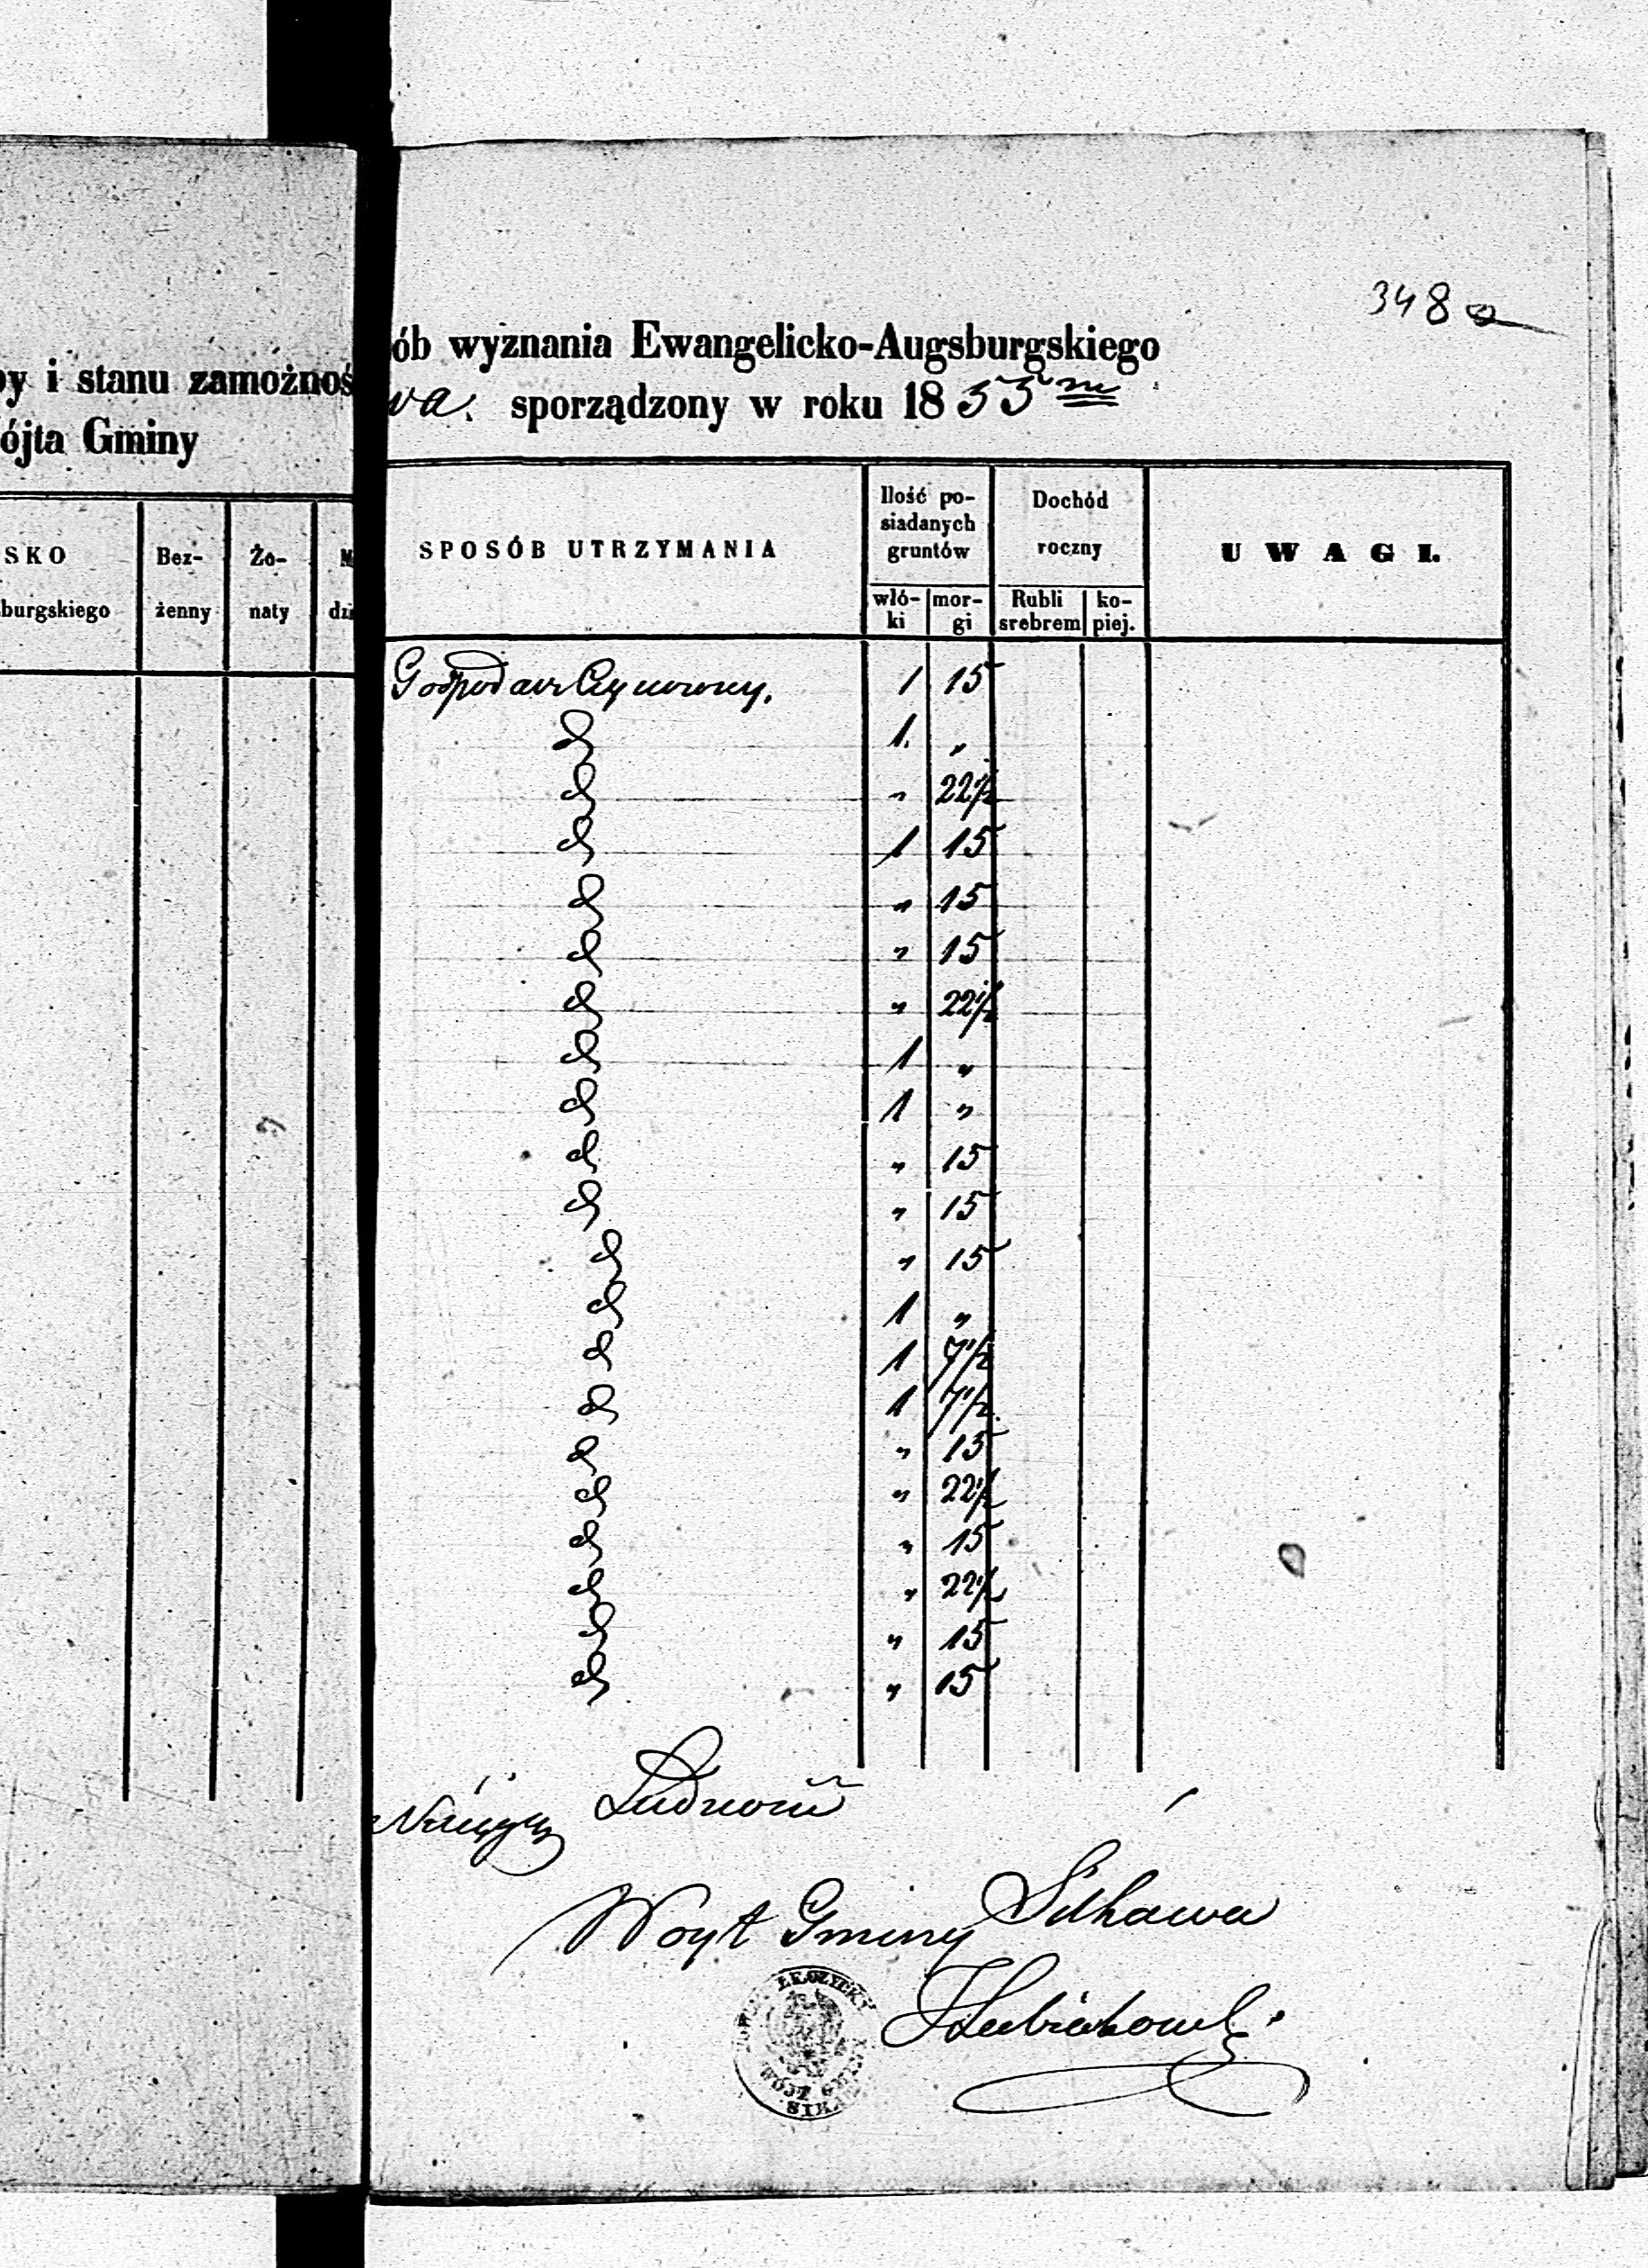 348a
by i stanu zamożnoś
ójta Gminy
SKO
burgskiego
Bez-
żenny
Żo-
naty
M
dzi
ób wyznania Ewangelicko-Augsburgskiego
wa. sporządzony w roku 1855m
SPOSÓB UTRZYMANIA
Ilość po-
siadanych
gruntów
Dochód
roczny
UWAGI.
włó-
ki
mor-
gi
Rubli
srebrem
ko-
piej.
Gospodarz Czynszowy. 1 15
d 1. "
d " 22½
d 1 15
d " 15
d " 15
d " 22½
d 1 "
d 1 "
d " 15
d " 15
d " 15
d 1 "
d 1 7½
d 1 7½
d " 15
d " 22½
d " 15
d " 22½
d " 15
d " 15
Woyt Gminy
ŁĘCZYCKI
WÓJT GMINY